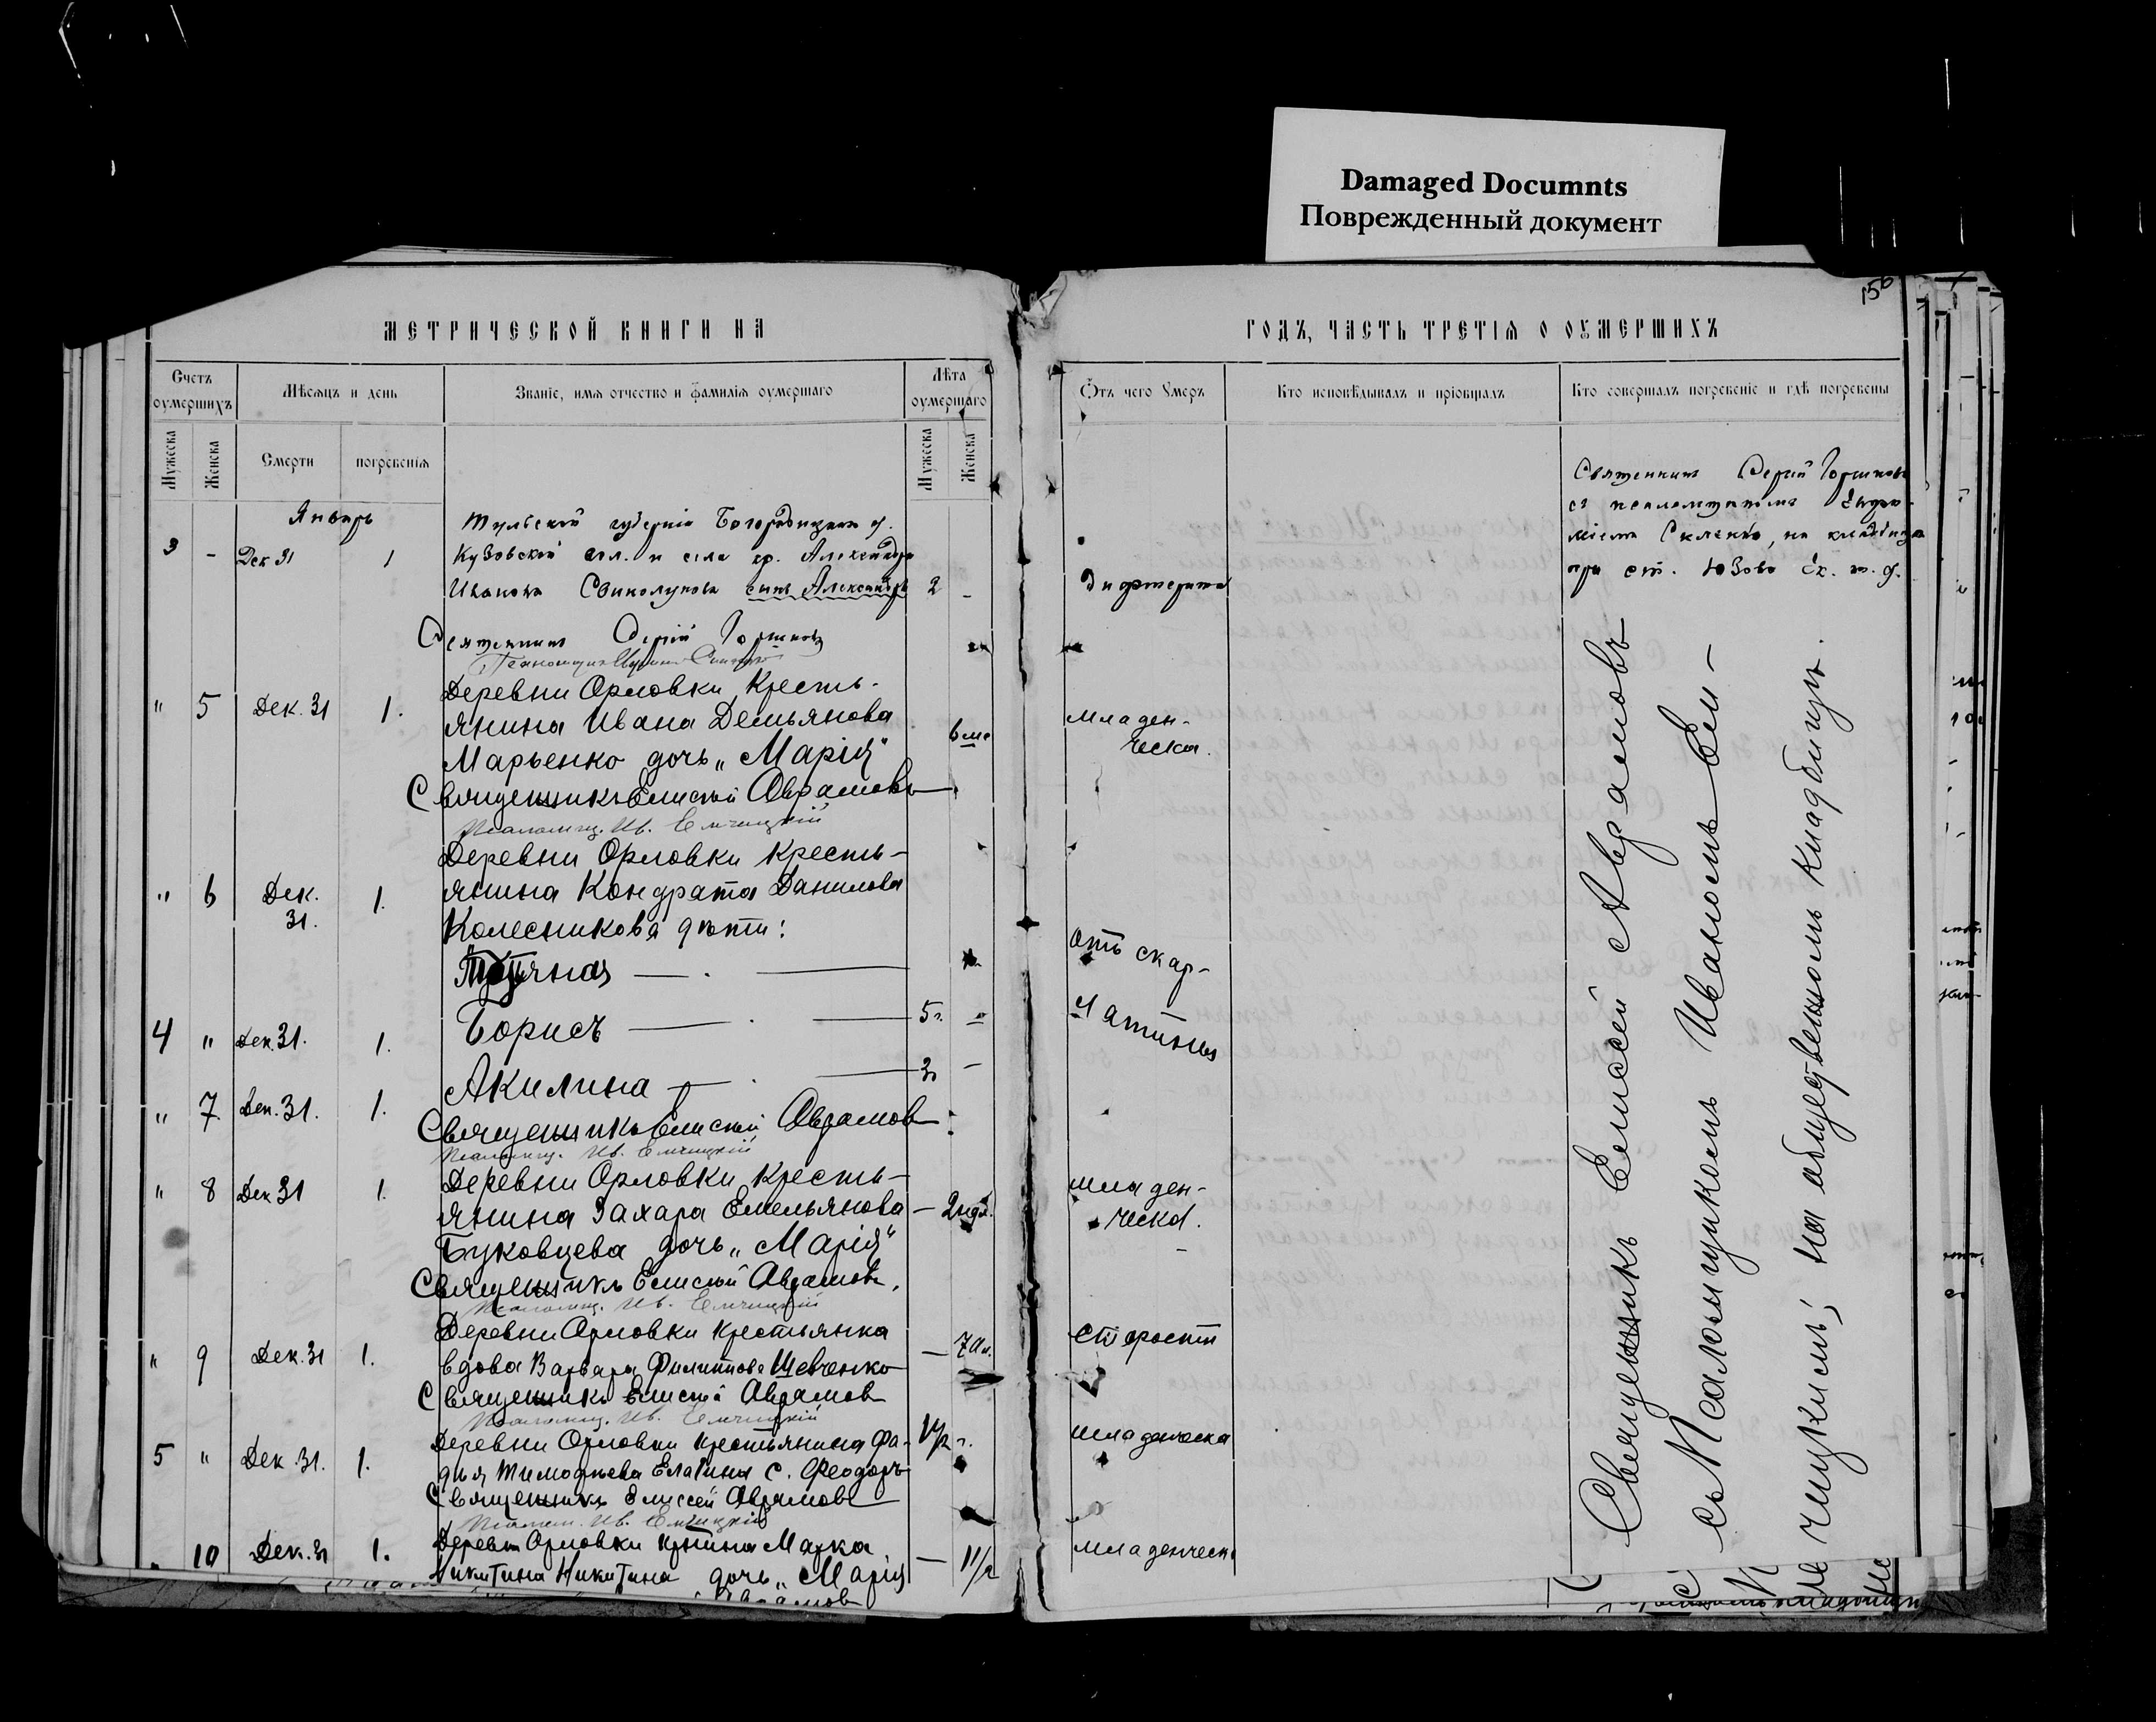 Damaged Documnts
Поврежденный документ
156
МЕТРИЧЕСКОЙ КНИГИ НА
ГОДЪ, ЧАСТЬ ТРЕТІЯ О ОУМЕРШИХЪ
Счетъ оумершихъ
Мѣсяцъ и день
Званіе, имя отчество и фамилія оумершаго
Лѣта оумершаго
Отъ чего Умеръ
Кто исповѣдывалъ и пріобщалъ
Кто совершалъ погребеніе и гдѣ погребены
Мужеска
Женска
Смерти
погребенія
Мужеска
Женска
Январь
Тульской губерніи Богородицкаго у.
3 - Дек 31 1 Кузовской вол. и села кр. Александра
Иванова сынъ Александръ 2 - Дифтерита
Священникъ Сергій Горшковъ
Священникъ Сергій Горшковъ
съ псаломщикомъ
на кладбищѣ
при ст. Юзово Ек. ж. д.
Деревни Орловки Кресть-
" 5 Дек. 31 1. янина Ивана Демьянова 6 ме младен-
Марьенко дочь „Марія" ческа.
Священникъ Елисей Аврамовъ
Псаломщ. Ив. Емчицкій
Деревни Орловки Кресть-
" 6 Дек. 31. 1. янина Кондрата Данилова
Колесникова дѣти:
отъ скар-
4 " Дек. 31. 1. Борисъ 5 г. - латины
" 7 Дек. 31. 1. Акилина 3 -
Священникъ Елисей Аврамовъ
Псаломщ. Ив. Емчицкій
" 8 Дек 31 1. Деревни Орловки Кресть- младен-
янина Захара Емельянова - 2 нед. ческа.
Буковцева дочь „Марія"
Священникъ Елисей Аврамовъ.
Псаломщ. Ив. Емчицкій
Деревни Орловки крестьянка старости
" 9 Дек. 31 1. вдова Варвара Филиппова Шевченко - 70 л.
Священникъ Елисей Аврамовъ
Псаломщ. Ив. Емчицкій
5 " Дек 31. 1. Деревни Орловки крестьянина Фа- 1 1/2 г. младенческа
дѣя Тимофѣева Елагина с. Феодоръ
Священникъ Елисей Аврамовъ
Псалом. Ив. Емчицкій
" 10 Дек. 31 1. Деревни Орловки крнина Марка - 1 1/2 младенческ
Никитина Никитина дочь „Марія
Аврамовъ
Священникъ Елисей Аврамовъ
съ Псаломщикомъ Иваномъ Ем-
чицкимъ; на общественомъ кладбищѣ.